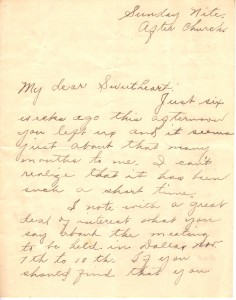 Sunday Nite,
After Church
My dear Sweetheart;
Just six
weeks ago this afternoon
you left us and it seems
just about that many
months to me. I can't
realize that it has been
such a short time.
I note with a great
deal of interest what you
say about the meeting
to be held in Dallas Nov
7th to 10th. If you
should find that you